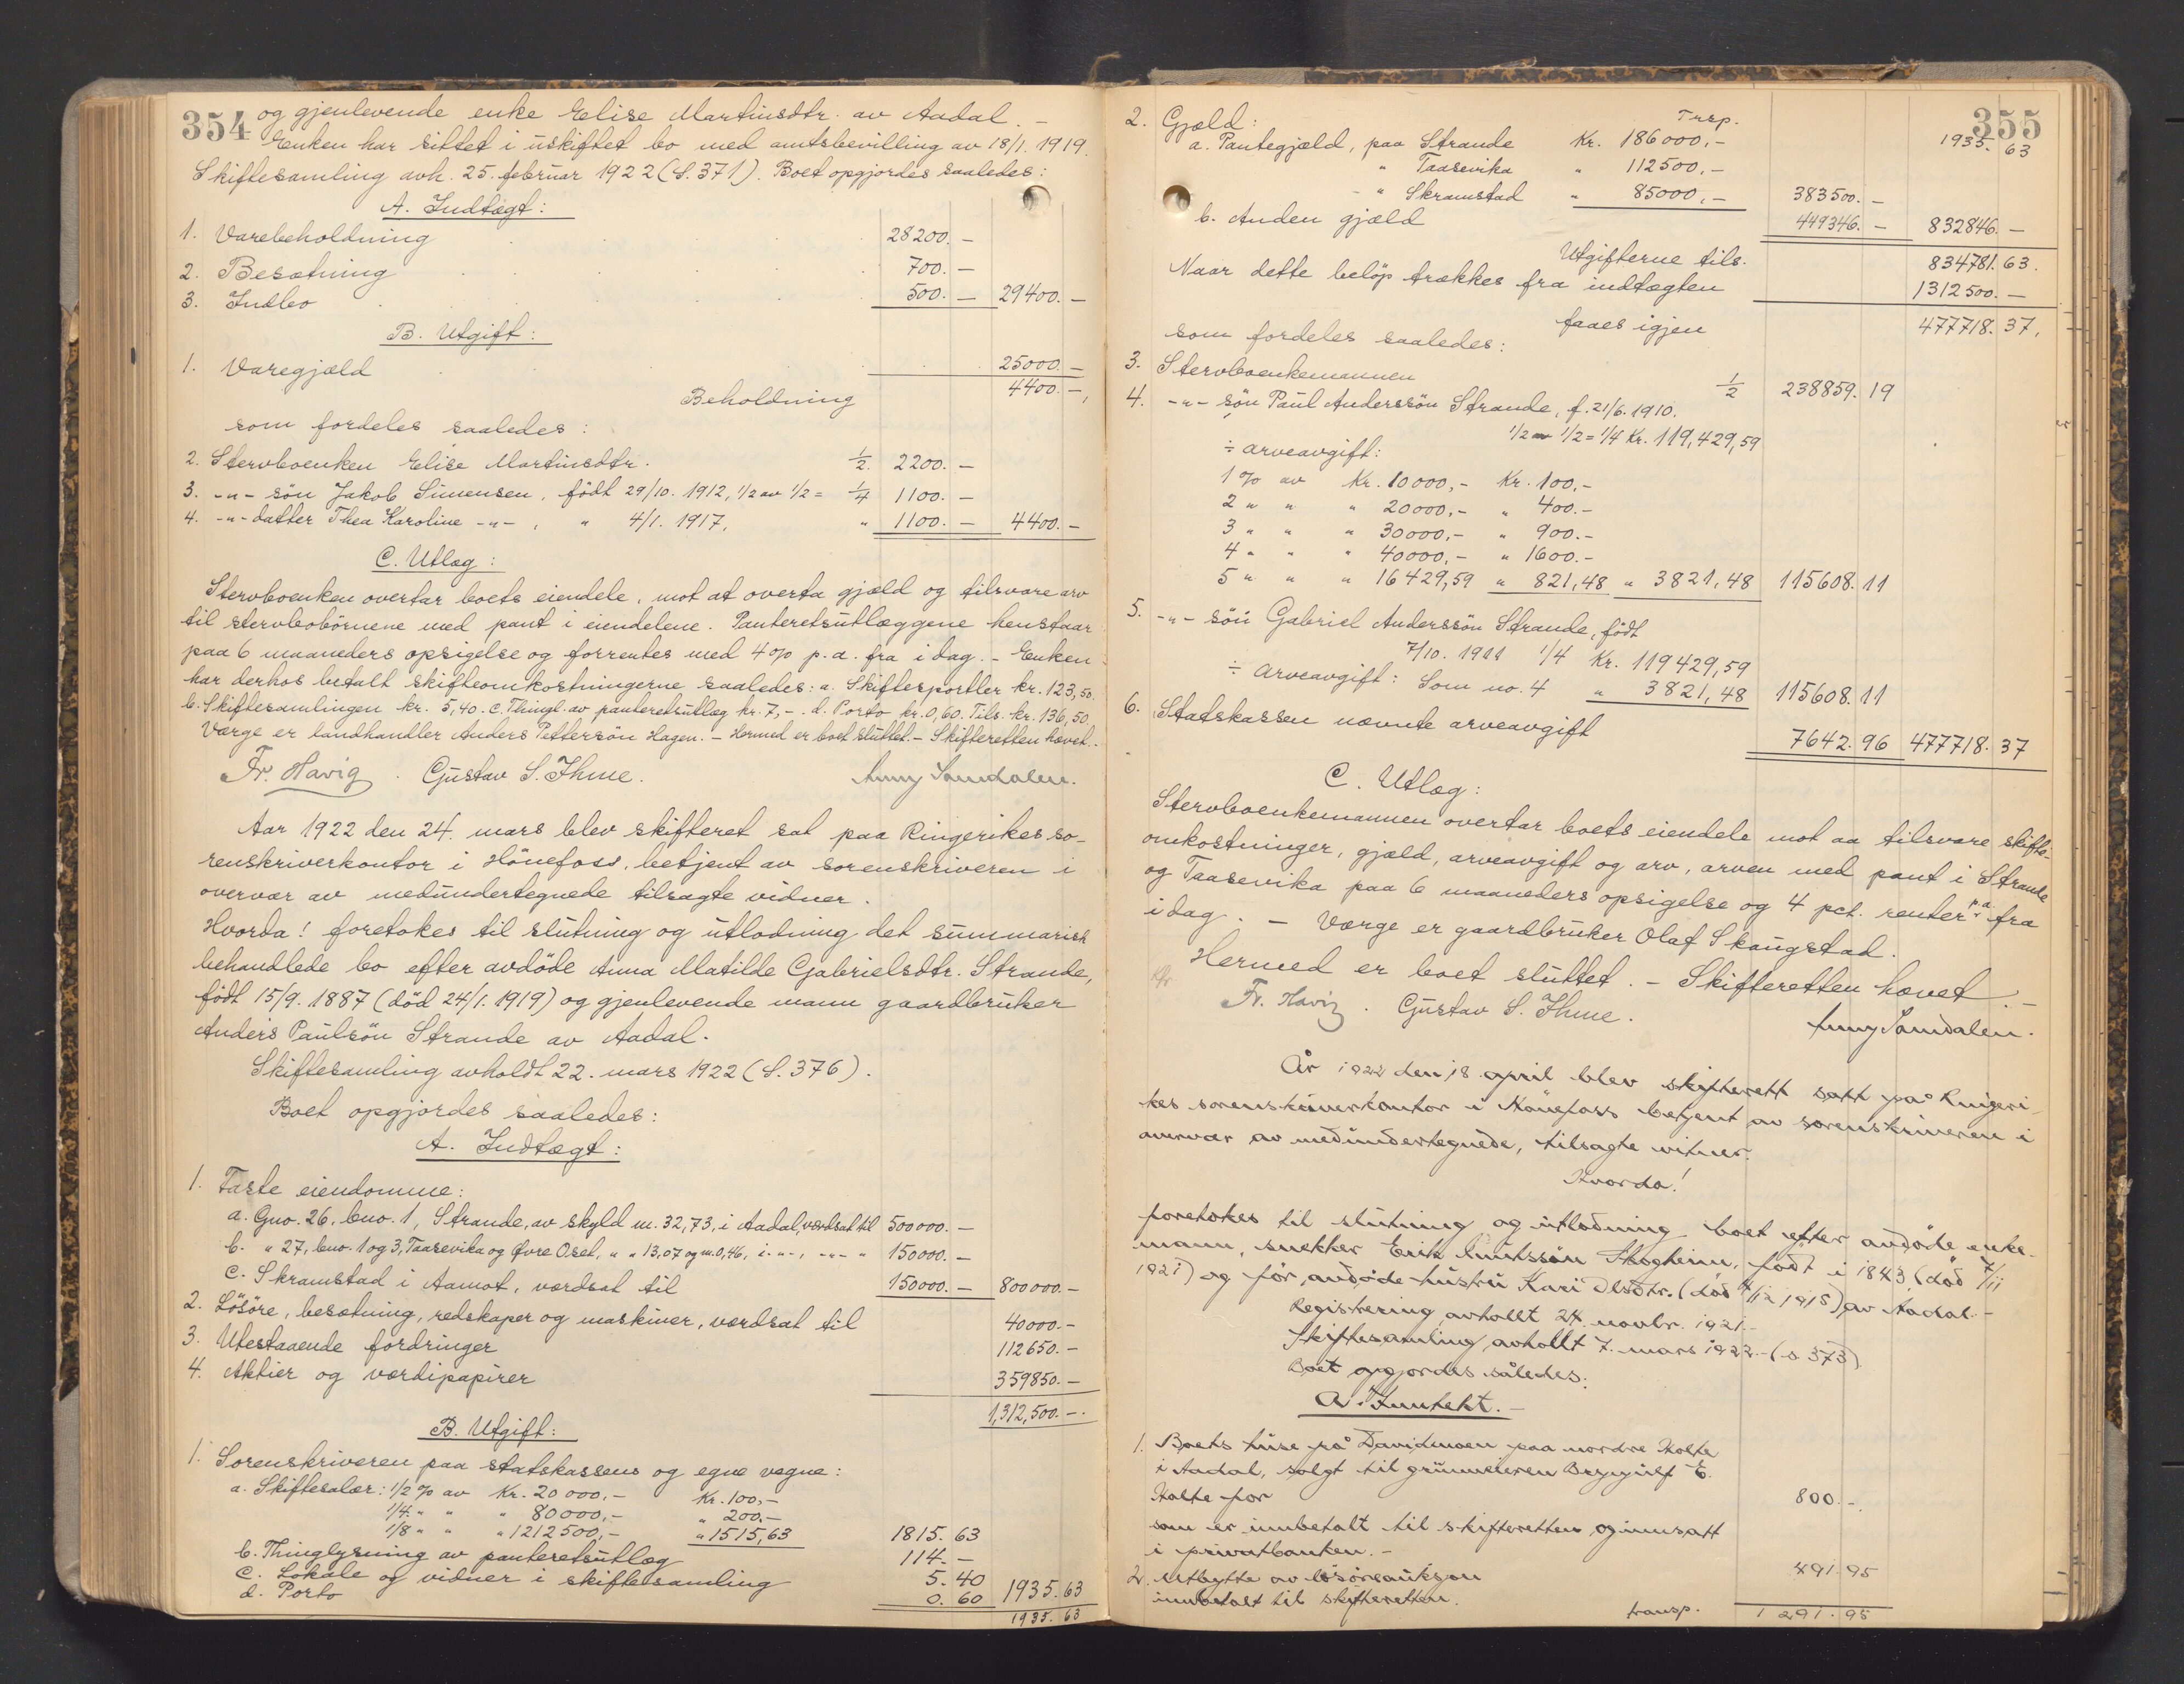 354
og gjenlevende enke Elise Martinsdtr. av Aadal. –
Enken har sittet i uskiftet bo med amtsbevilling av 18/1. 1919.
Skiftesamling avh. 25. februar 1922 (S. 371). Boet opgjordes saaledes:
A. Indtægt:
1. Varebeholdning 28200. –
2. Besætning 700. –
3. Indbo 500. – 29400. –
B. Utgift:
1. Varegjæld 25000. –
Beholdning 4400. –,
som fordeles saaledes:
2. Stervboenken Elise Martinsdtr. 1/2 2200. –
3. -"- søn Jakob Simensen, født 29/10. 1912, 1/2 av 1/2 = 1/4 1100. –
4. -"- datter Thea Karoline -"- , " 4/1. 1917, " 1100. – 4400. –
C. Utlæg:
Stervboenken overtar boets eiendele, mot at overta gjæld og tilsvare arv
til stervbobørnene med pant i eiendelene. Panteretsutlæggene henstaar
paa 6 maaneders opsigelse og forrentes med 4 % p.a. fra i dag. – Enken
har derhos betalt skifteomkostningerne saaledes: a. Skiftesportler kr. 123,50.
b. Skiftesamlingen kr. 5,40. c. Thingl. av panteretsutlæg kr. 7,-. d. Porto kr. 0,60. Tils. kr. 136,50.
Værge er landhandler Anders Pettersøn Hagen. – Hermed er boet sluttet. – Skifteretten hævet. –
Fr. Havig. Gustav S. Ihme. Anny Samdalen.
Aar 1922 den 24. mars blev skifteret sat paa Ringerikes so-
renskriverkontor i Hønefoss, betjent av sorenskriveren i
overvær av medundertegnede tilsagte vidner.
Hvorda! foretokes til slutning og utlodning det summarisk
behandlede bo efter avdøde Anna Matilde Gabrielsdtr. Strande,
født 15/9. 1887 (død 24/1. 1919) og gjenlevende mann gaardbruker
Anders Paulsøn Strande av Aadal.
Skiftesamling avholdt 22. mars 1922 (S. 376).
Boet opgjordes saaledes:
A. Indtægt:
1. Faste eiendomme:
a. Gno. 26, bno. 1, Strande, av skyld m. 32,73, i Aadal, værdsat til 500000. –
b. " 27, bno. 1 og 3, Taasevika og Øvre Oset, " " 13,07 og m. 0,46, i -"-, -"- " 150000. –
c. Skramstad i Aamot, værdsat til 150000. – 800000. –
2. Løsøre, besætning, redskaper og maskiner, værdsat til 40000. –
3. Utestaaende fordringer 112650. –
4. Aktier og værdipapirer 359850. –
1,312,500. –.
B. Utgift:
1. Sorenskriveren paa statskassens og egne vegne:
a. Skiftesalær: 1/2 % av Kr. 20 000,- Kr. 100,-
1/4 " " " 80000,- " 200.-
1/8 " " " 1212500,- " 1515,63 1815. 63
b. Thinglysning av panteretsutlæg 114. –
c. Lokale og vidner i skiftesamling 5. 40
d. Porto 0. 60 1935. 63
1935. 63
355
Trsp. 1935. 63
2. Gjæld:
a. Pantegjæld, paa Strande Kr. 186000,-
" Taasevika " 112500,-
-" Skramstad " 85000,- 383500. –
b. Anden gjæld 449346. – 832846. –
Utgifterne tils. 834781. 63.
Naar dette beløp trækkes fra indtægten 1312500. –
faaes igjen 477718. 37,
som fordeles saaledes:
3. Stervboenkemannen 1/2 238859. 19
4. -"- søn Paul Anderssøn Strande, f. 21/6. 1910.
1/2 av 1/2 = 1/4 Kr. 119,429,59
÷ arveavgift:
1 % av Kr. 10000,- Kr. 100,-
2 " " " 20000,- " 400.-
3 " " " 30000,- " 900.-
4 " " " 40000,- " 1600.-
5 " " " 16429,59 " 821,48 " 3821,48 115608. 11
5. -"- søn Gabriel Anderssøn Strande, født
7/10. 1911 1/4 Kr. 119429,59
÷ arveavgift: Som no. 4 " 3821,48 115608. 11
6. Statskassen nævnte arveavgift 7642. 96 477718. 37
C. Utlæg:
Stervboenkemannen overtar boets eiendele mot aa tilsvare skifte-
omkostninger, gjæld, arveavgift og arv, arven med pant i Strande
og Taasevika paa 6 maaneders opsigelse og 4 pct. renter p.a. fra
i dag. – Værge er gaardbruker Olaf Skaugstad.
Hermed er boet sluttet. – Skifteretten hævet. –
Fr. Havig. Gustav S. Ihme. Anny Samdalen.
År 1922 den 18. april blev skifterett satt på Ringeri-
kes sorenskriverkontor i Hønefoss betjent av sorenskriveren i
overvær av medundertegnede, tilsagte vitner.
Hvorda!
foretokes til slutning og utlodning boet efter avdøde enke-
mann, snekker Erik Knutssøn Skogheim, født i 1843 (død 7/11
1921) og før avdøde hustru Kari Olsdtr. (død 4/12 1915) av Aadal. –
Registrering avholt 24. novbr. 1921. –
Skiftesamling avholt 7. mars 1922 – (s. 373)
Boet opgjordes således:
A. Inntekt. –
1. Boets huse på Davidmoen paa nordre Holte
i Aadal, solgt til grunneieren Brynjulf E.
Holte for 800 –.
som er innbetalt til skifteretten og innsatt
i privatbanken. –
2. Utbytte av løsøreauksjon 491. 95
innbetalt til skifteretten.
transp. 1 291. 95